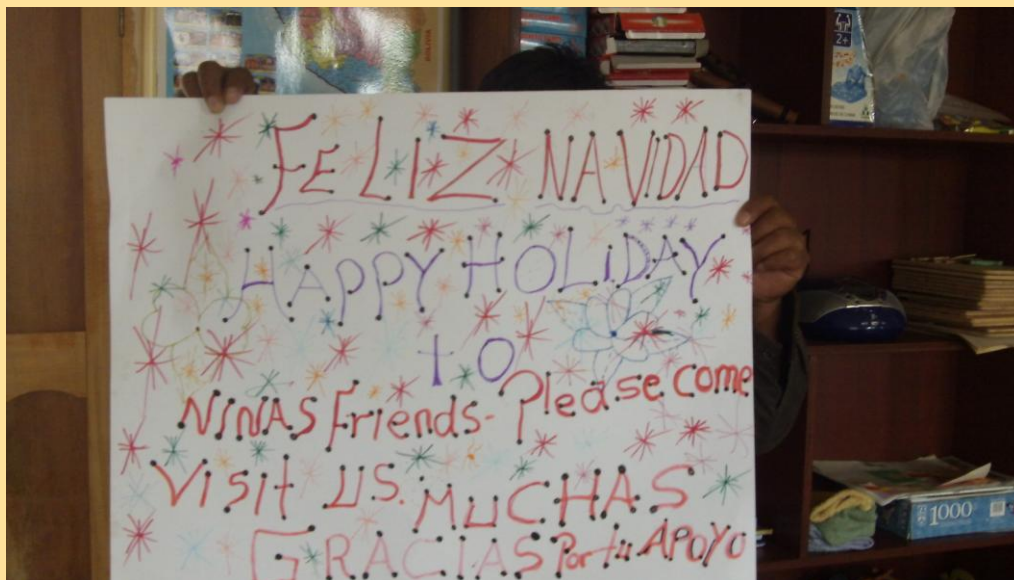 FELIZ NAVIDAD
HAPPY HOLiDAY
to
NiNAS Friends- Please come
Visit us. MuCHAS
GRACIAS Por tu APOYO
2+
1000